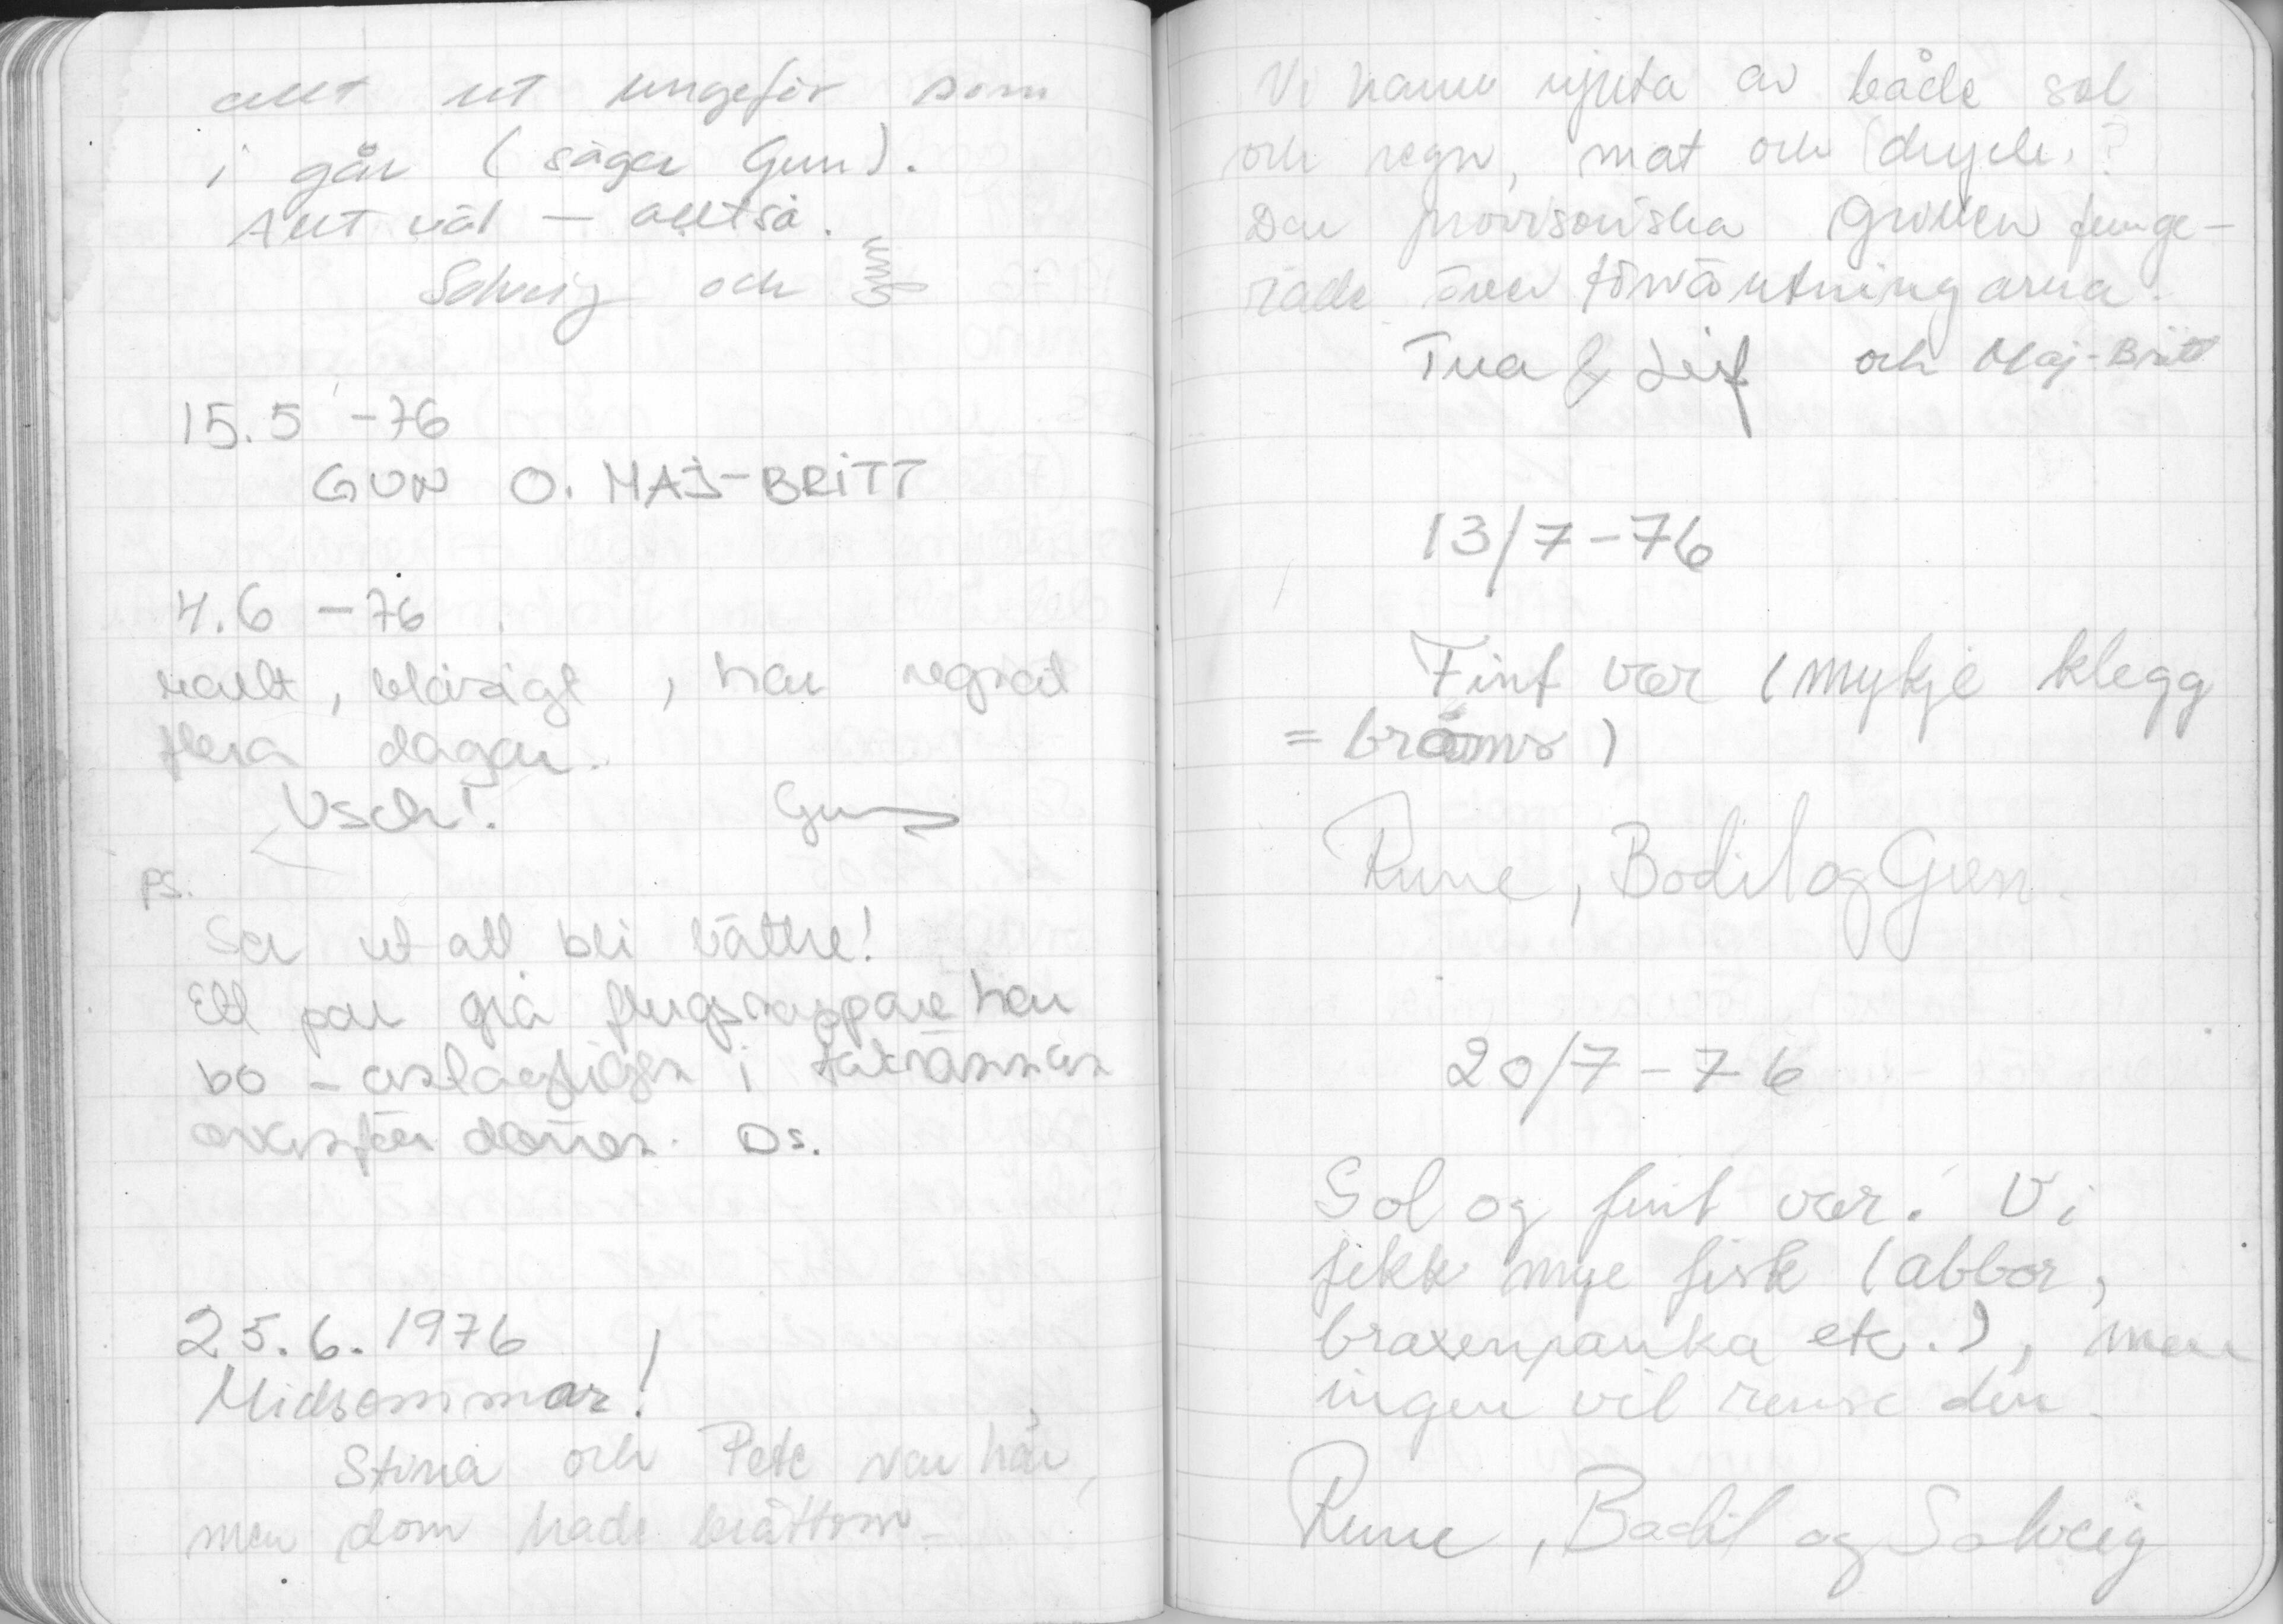 allt ut ungefär som
i går (säger Gun).
Allt väl – alltså.
Solveig och
15.5 -76
GUN O. MAJ-BRITT
4.6 -76
kallt, blåsigt, har regnat
flera dagar.
Usch! Gun
PS.
Ser ut att bli bättre!
Ett par grå flugsnappare har
bo - i takrännan
ovanför dörren. Ds.
25.6.1976
Midsommar!
Stina och Pete var här,
men dom hade bråttom.
Vi hann njuta av både sol
och regn, mat och (dryck.?
Den provisoriska grillen funge-
rade över förväntningarna.
Tua & Leif och Maj-Britt
13/7-76
Fint vær (mykje klegg
= broms)
Rune, Bodil og Gun.
20/7-76
Sol og fint vær. Vi
fekk mye fisk (abbor,
braxenpanka etc.), men
ingen vil rense den.
Rune, Bodil og Solveig